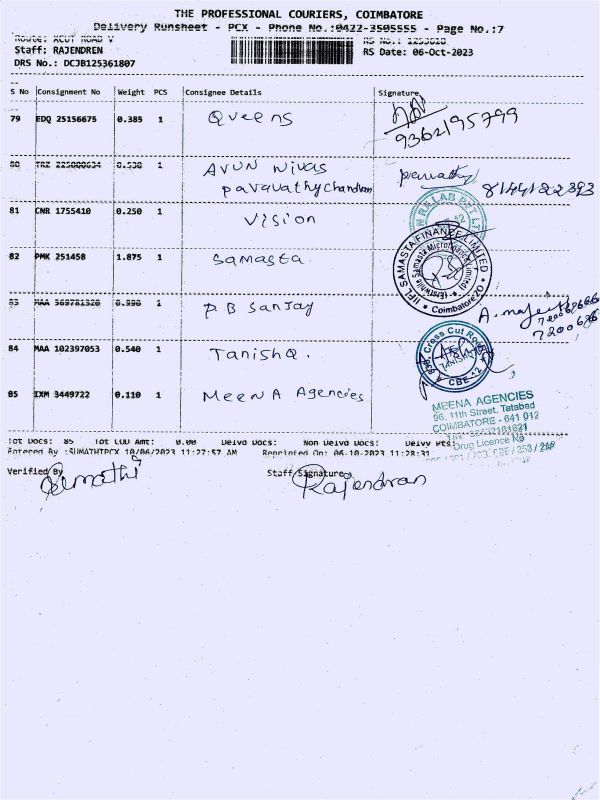 THE PROFESSIONAL COURIERS, COIMBATORE
Delivery Runsheet - PCX - Phone No.:0422-3505555 - Page No.:7
Route: XCUT ROAD V
Staff: RAJENDREN RS Date: 06-Oct-2023
DRS No.: DCJB125361807
S No Consignment No Weight PCS Consignee Details Signature
79 EDQ 25156675 0.385 1 Queens
9362195799
80 1 Arun Nivas
Paravathychandran
parvathy 8144182393
81 CNR 1755410 0.250 1 Vision
82 PMK 251458 1.875 1 Samasta.
IIFL SAMASTA FINANCE LIMITED
(Erstwhile Samasta Microfinance Limited)
Coimbatore
83 1 P B Sanjay
84 MAA 102397053 0.540 1 Tanishq.
Cross Cut Road
TANISHQ
CBE - 12
85 IXM 3449722 0.110 1 Meena Agencies
MEENA AGENCIES
96, 11th Street, Tatabad
COIMBATORE - 641 012
Drug Licence No
Tot Docs: 85 Tot COD Amt: 0.00 Delvd Docs: Non Delvd Docs: Delvy Pct:
Entered By :SUMATHIPCX 10/06/2023 11:27:57 AM Reprinted On: 06-10-2023 11:28:31
Verified By Staff Signature
Sumathi Rajendran